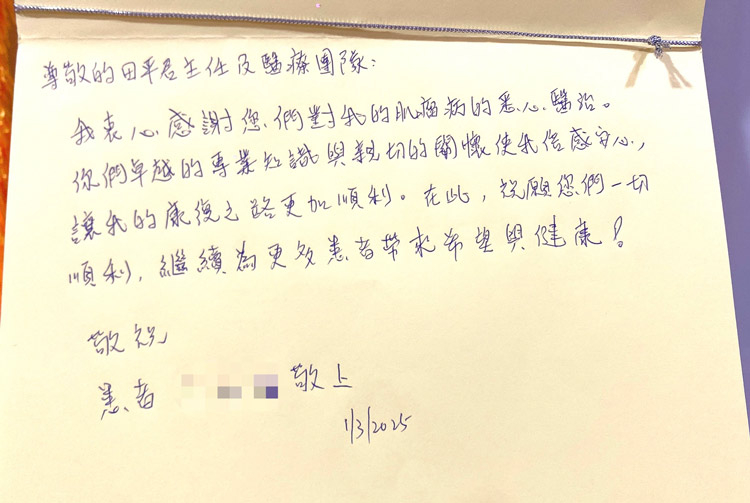 尊敬的田平君主任及醫療團隊：
我衷心感謝您們對我的肌瘤病的悉心醫治。
你們卓越的專業知識與親切的關懷使我倍感安心，
讓我的康復之路更加順利。在此，祝願您們一切
順利，繼續為更多患者帶來希望與健康！
敬祝
患者 敬上
1/3/2025